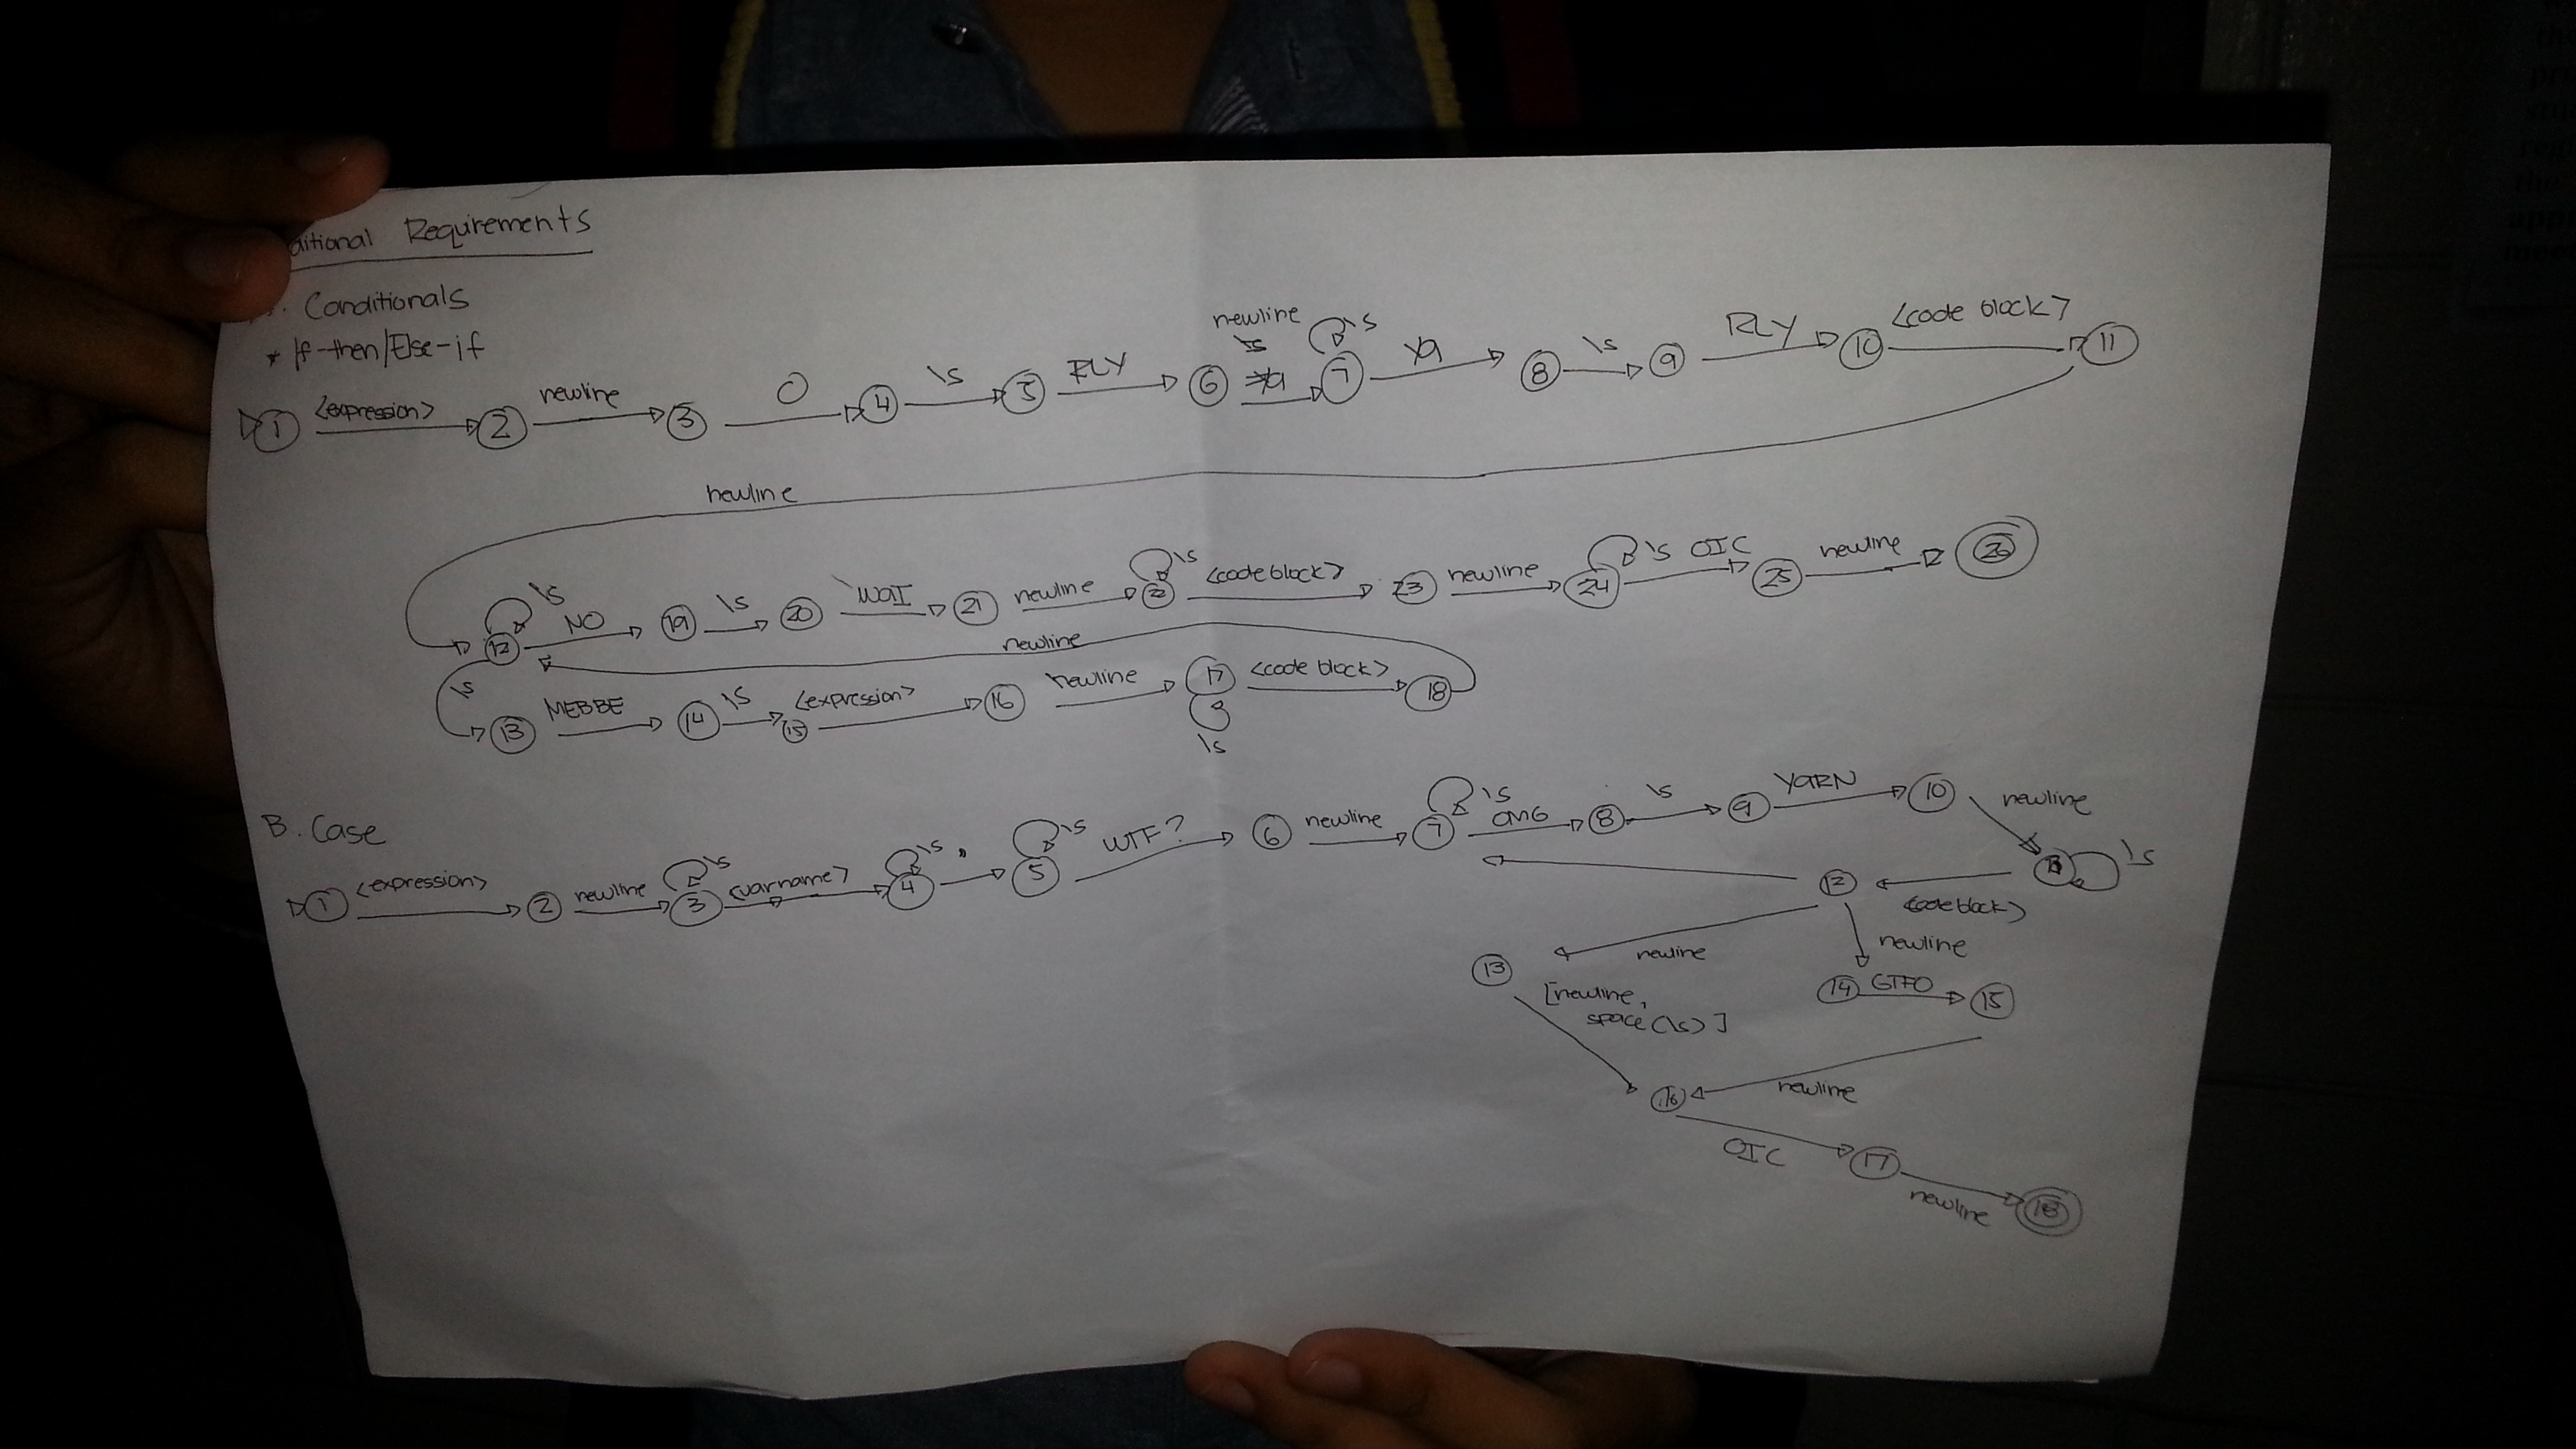 ditional Requirements
. Conditionals
* If-then/Else-if
1 <expression> 2 newline 3 O 4 \s 5 RLY 6 newline 7 \s YA 8 \s 9 RLY 10 <code block> 11
newline
12 \s NO 19 \s 20 WAI 21 newline 22 \s <code block> 23 newline 24 \s OIC 25 newline 26
newline
\s 13 MEBBE 14 \s 15 <expression> 16 newline 17 <code block> 18
\s
B. Case
1 <expression> 2 newline 3 \s <varname> 4 \s , 5 \s WTF? 6 newline 7 \s OMG 8 \s 9 YARN 10 newline
\s
12 <code block>
newline newline
13 14 GTFO 15
[newline,
space(\s)]
16 newline
OIC 17
newline 18